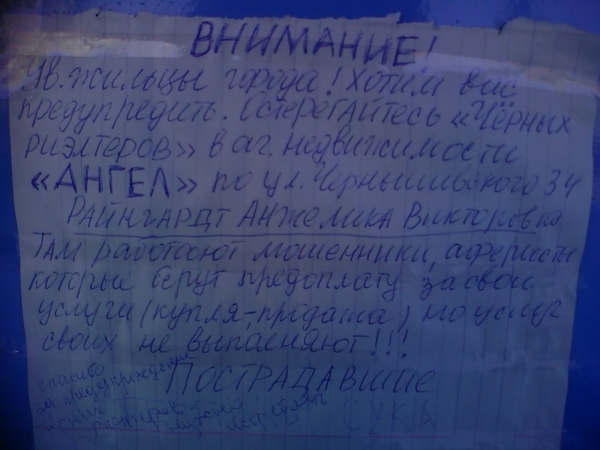 ВНИМАНИЕ!
Ув. жильцы города! Хотим вас
предупредить. Остерегайтесь «Чёрных
риэлтеров» в аг. недвижимости
«АНГЕЛ» по ул. Чернышевского 34
РАЙНГАРДТ АНЖЕЛИКА ВИКТОРОВНА
Там работают мошенники, аферисты
которые берут предоплату за свои
услуги (купля-продажа) но услуг
своих не выполняют!!!
ПОСТРАДАВШИЕ
спасибо
за предупреждение
СУКА